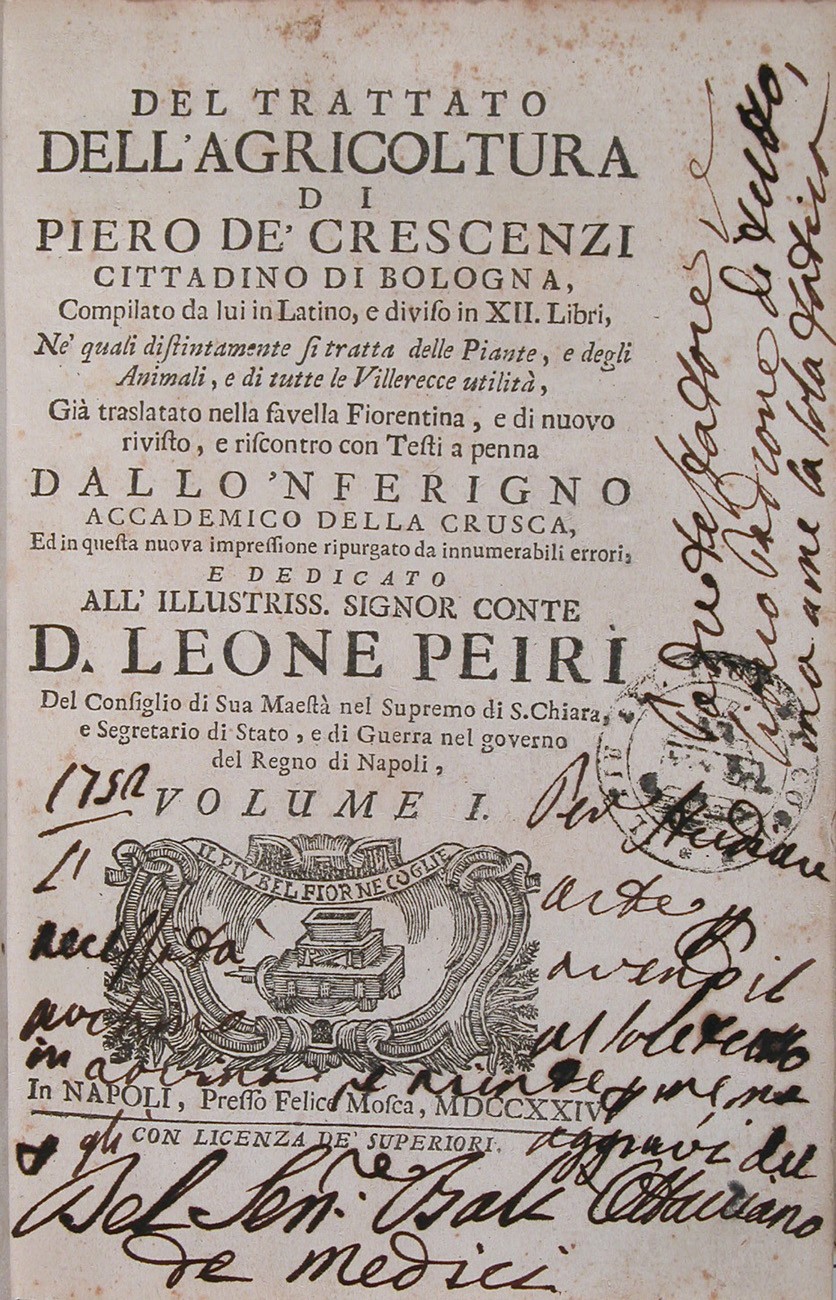 DEL TRATTATO
DELL'AGRICOLTURA
DI
PIERO DE' CRESCENZI
CITTADINO DI BOLOGNA,
Compilato da lui in Latino, e diviſo in XII. Libri,
Ne' quali diſtintamente ſi tratta delle Piante, e degli
Animali, e di tutte le Villerecce utilità,
Già traslatato nella favella Fiorentina, e di nuovo
riviſto, e riſcontro con Teſti a penna
DALLO 'NFERIGNO
ACCADEMICO DELLA CRUSCA,
Ed in queſta nuova impreſſione ripurgato da innumerabili errori,
E DEDICATO
ALL' ILLUSTRISS. SIGNOR CONTE
D. LEONE PEIRÌ
Del Conſiglio di Sua Maeſtà nel Supremo di S. Chiara,
e Segretario di Stato, e di Guerra nel governo
del Regno di Napoli,
VOLUME I.
IL PIV BEL FIOR NE COGLIE
In NAPOLI, Preſſo Felice Moſca, MDCCXXIV
CON LICENZA DE' SUPERIORI.
1752
L'
neceſſità
in
Per
arte
il
gli
aggravi del
Del Sen:re Bali Ottaviano
de medici
Padrone di
ma a me la sola